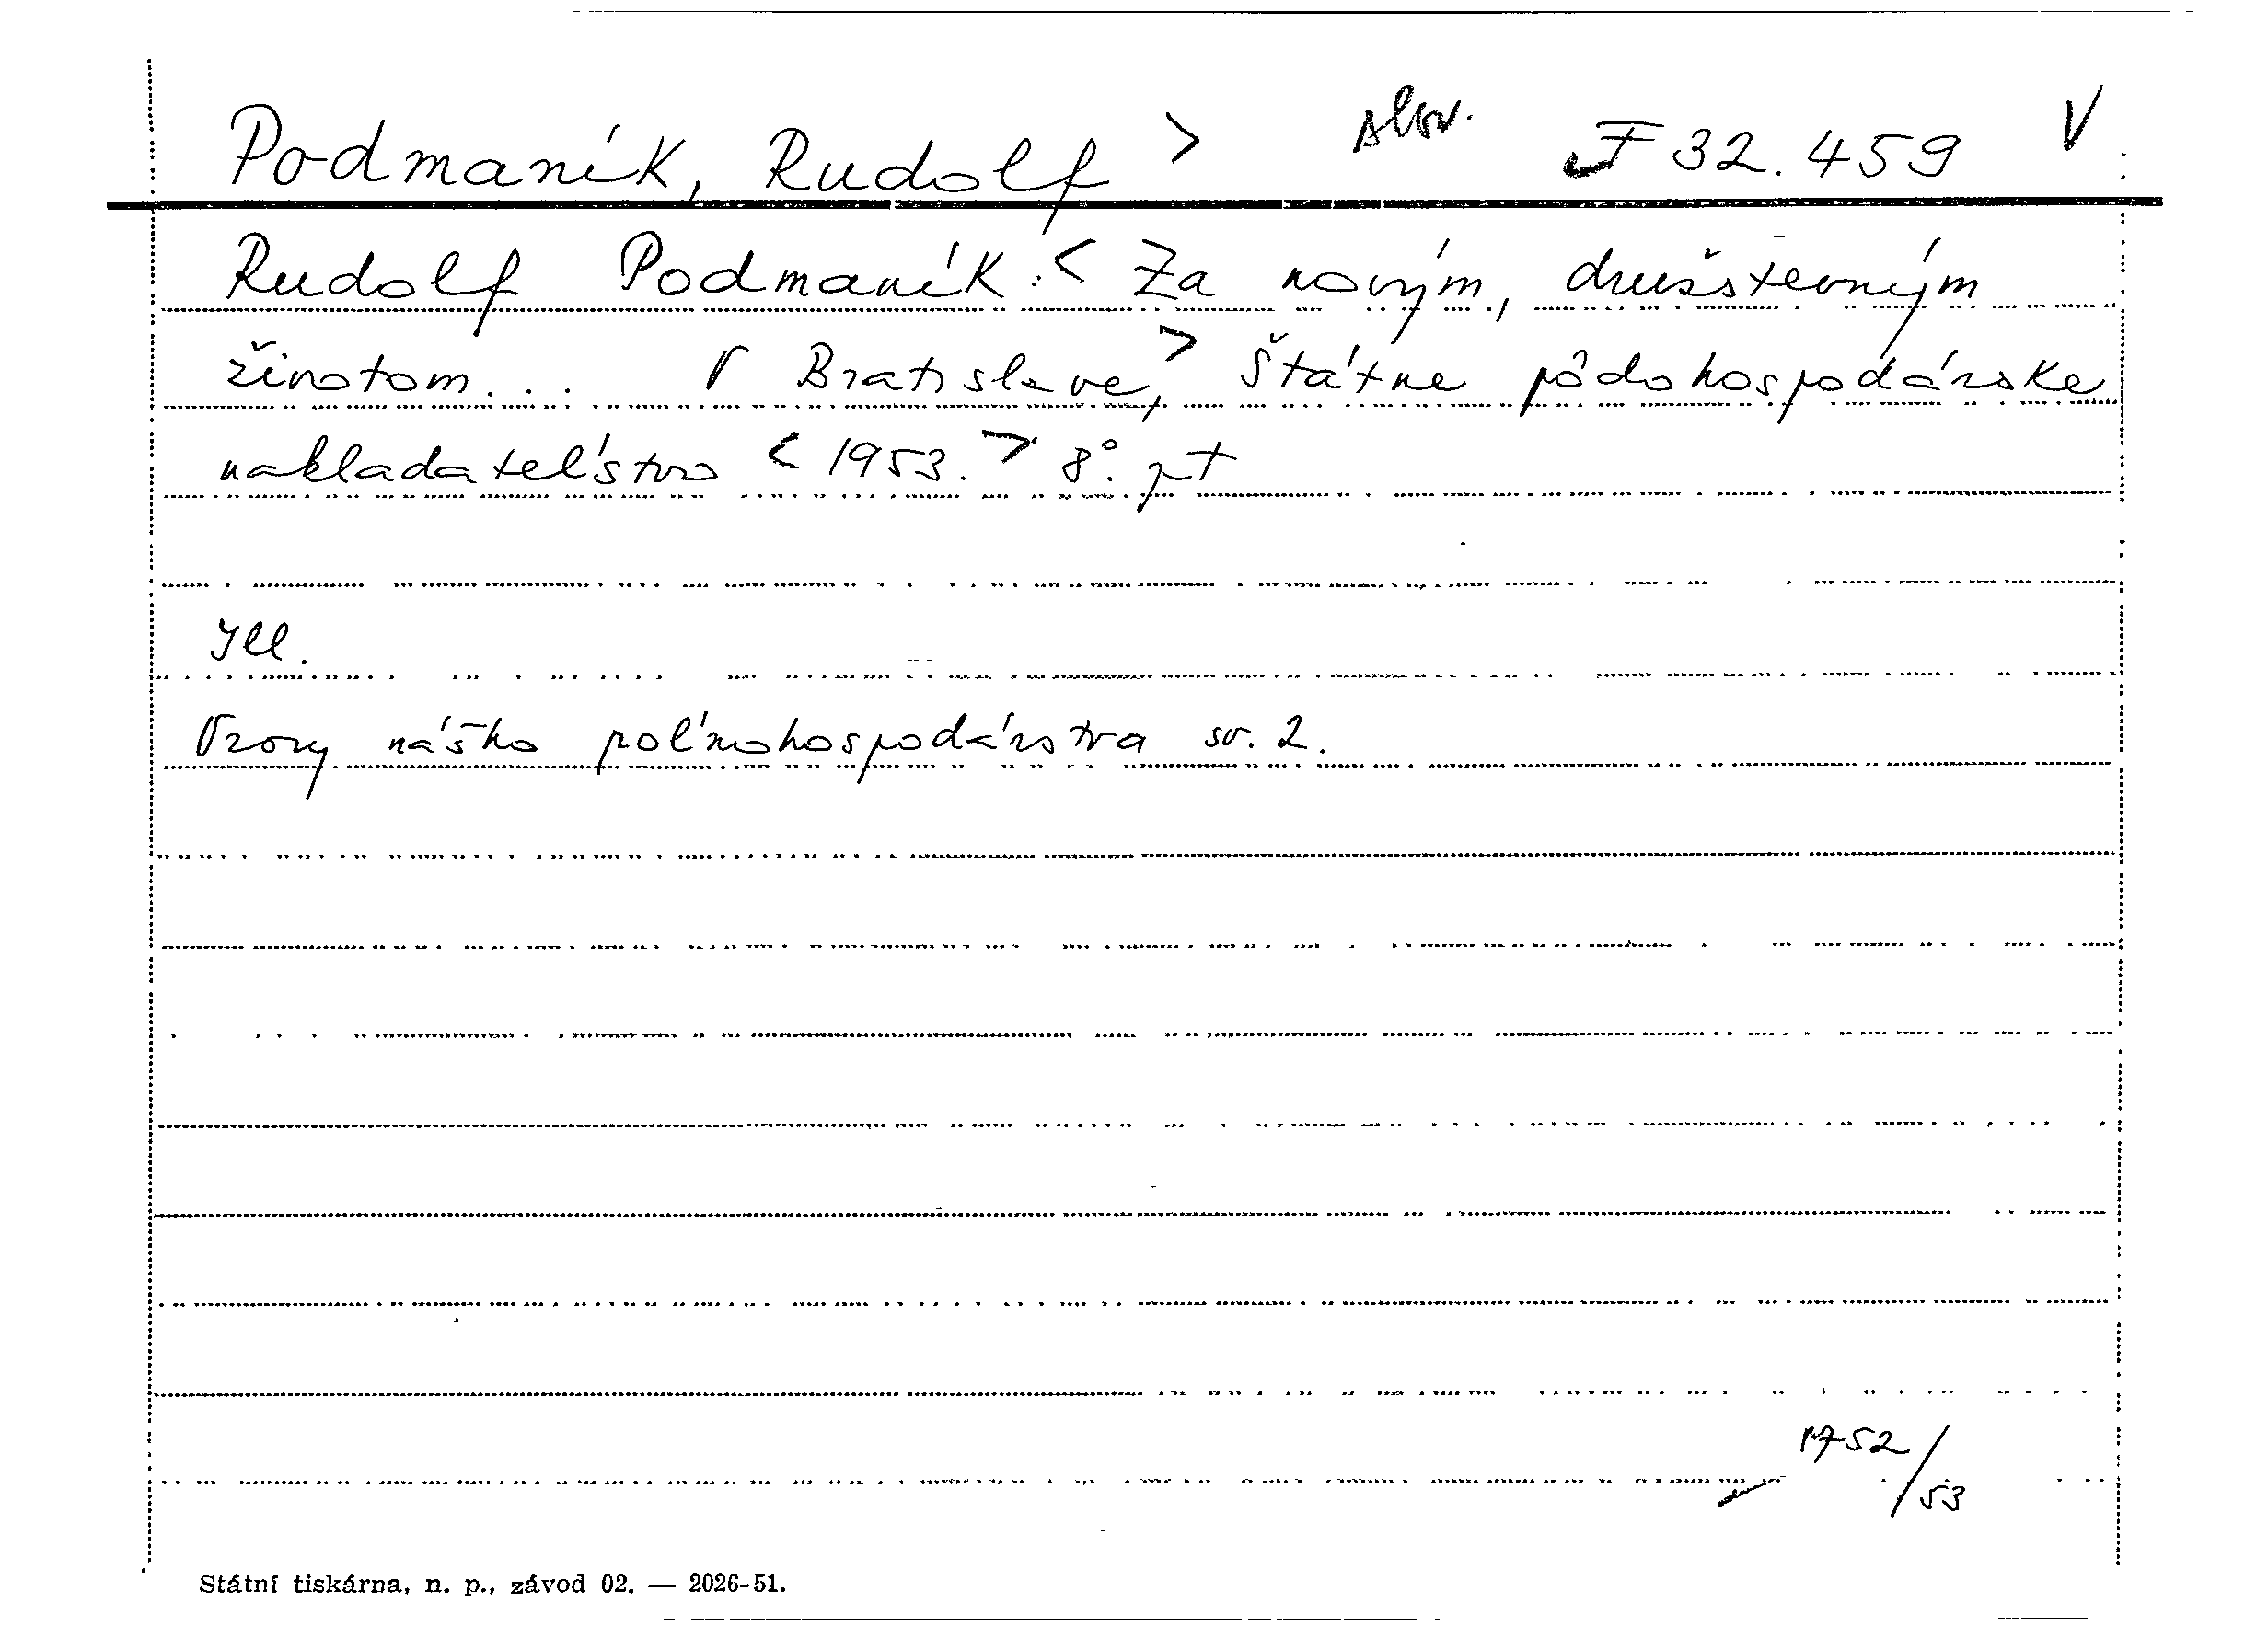 Podmaník, Rudolf > slov. F 32.459 V
Rudolf Podmaník: < Za novým, družstevným
životom... V Bratislave, > Štátne pôdohospodárske
nakladateľstvo < 1953. > 8°.
Ill.
Vzory nášho poľnohospodárstva sv. 2.
1752/53
Státní tiskárna, n. p., závod 02. — 2026-51.